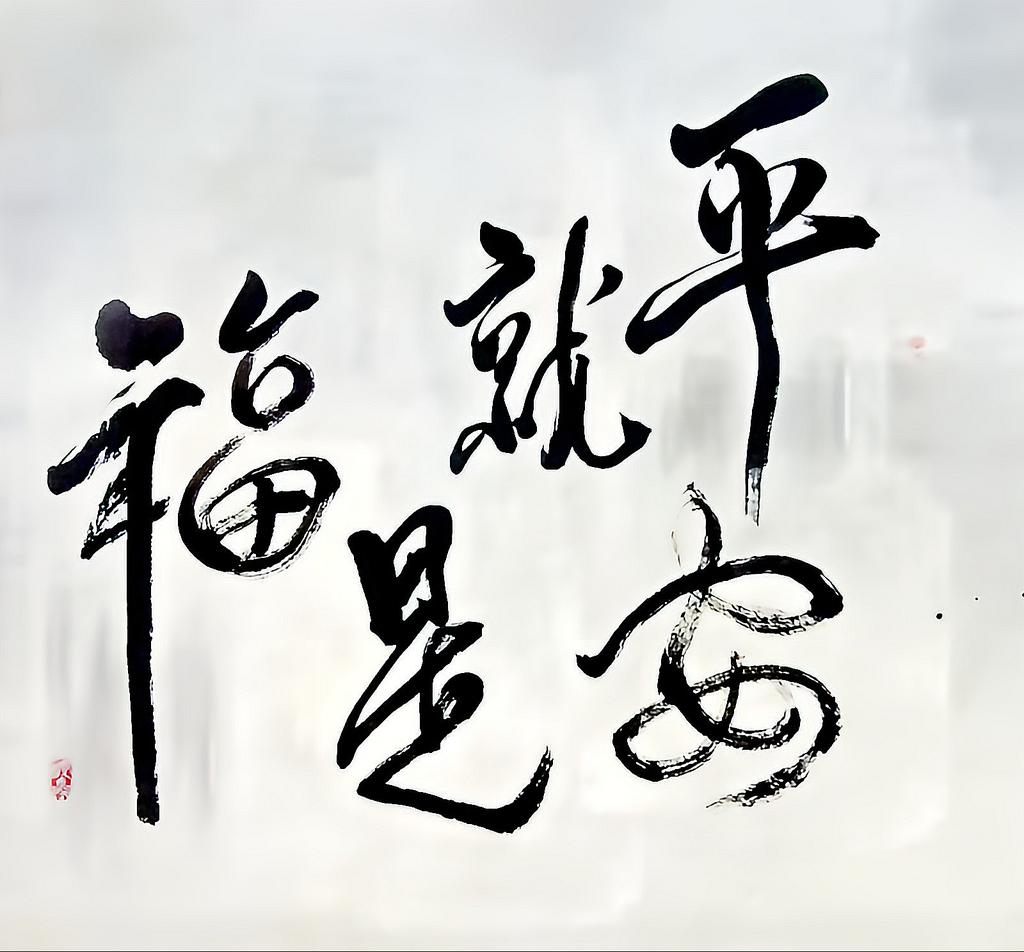 平安
就是
福